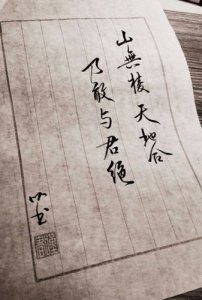 山無棱天地合
乃敢与君绝